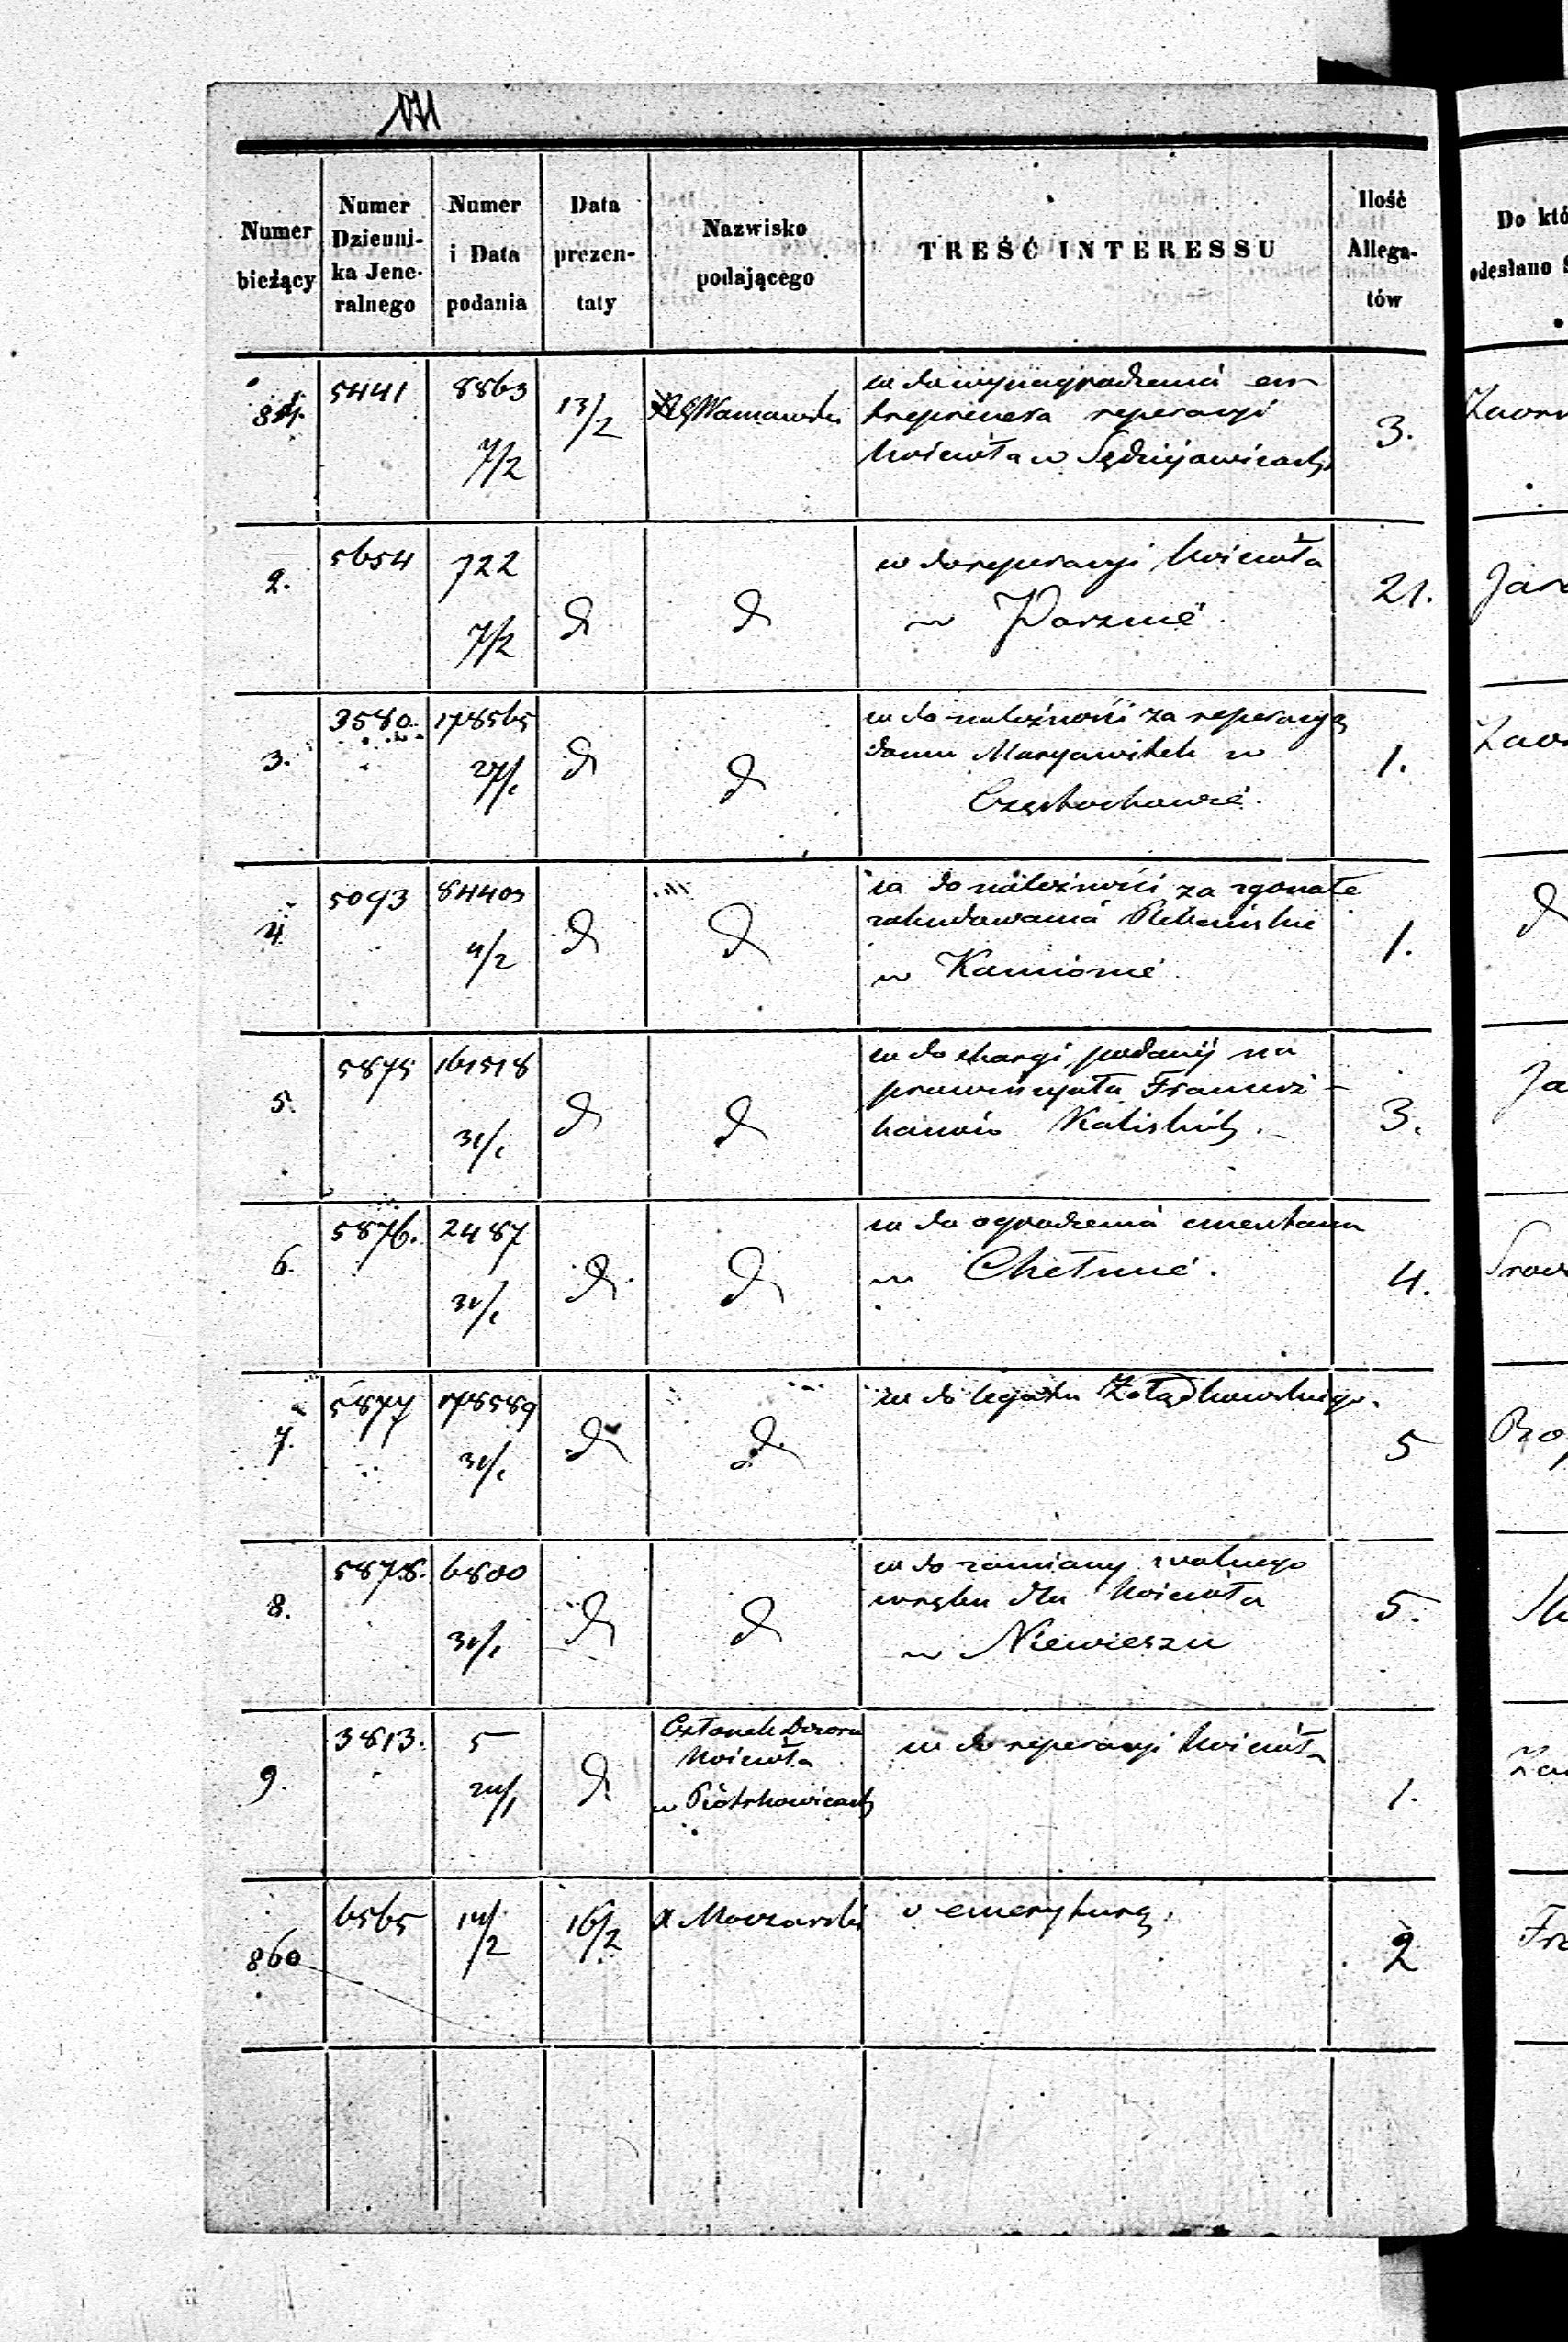 Numer bieżący
Numer Dzienni-ka Jene-ralnego
Numer i Data podania
Data prezen-taty
Nazwisko podającego
TREŚĆ INTERESSU
Ilość Allega-tów
Do któ
odesłano
5441
8863
7/2
13/2
w do wynagrodzenia en-
treprenera reperacyi
kościoła w Sędziejowicach
3.
2.
5654
722
7/2
d
d
w do reperacyi kościoła
w Parznie.
21.
3.
3580.
178565
27/1
d
d
w do należności za reperacyą
domu Maryawitek w
Częstochowie.
1.
4
5093
84403
4/2
d
d
w do należności za
zabudowania Plebańskie
w Kamionie.
1.
d
5.
5875
161518
31/1
d
d
w do skargi podanej na
prowincyała Francisz-
kanów Kaliskich.
3.
Ja
6.
5876.
2487
31/1
d
d
w do ogrodzenia cmentarza
w Chełmie.
4.
7.
5877
178589
31/1
d
d
w do legatu Żołądkowskiego.
5
8.
5878.
6800
31/1
d
d
w do zamiany wolnego
wrębu dla kościoła
w Niewieszu
5.
9.
3813.
5
24/1
d
Członek Dozoru
kościoła
w Piotrkowicach
w do reperacyi kościoła
1.
860
6565
14/2
16/2
X Moczarski
o emeryturę.
2